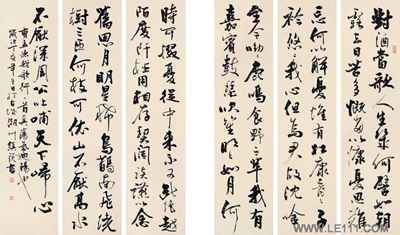 對酒當歌人生幾何譬如朝
露去日苦多慨當以慷憂思難
忘何以解憂惟有杜康青青子
衿悠悠我心但為君故沈吟
至今呦呦鹿鳴食野之苹我有
嘉賓鼓瑟吹笙明明如月何
時可掇憂從中來不可斷絕越
陌度阡枉用相存契闊談讌心念
舊恩月明星稀烏鵲南飛繞
樹三匝何枝可依山不厭高水
不厭深周公吐哺天下歸心
www.LE111.com